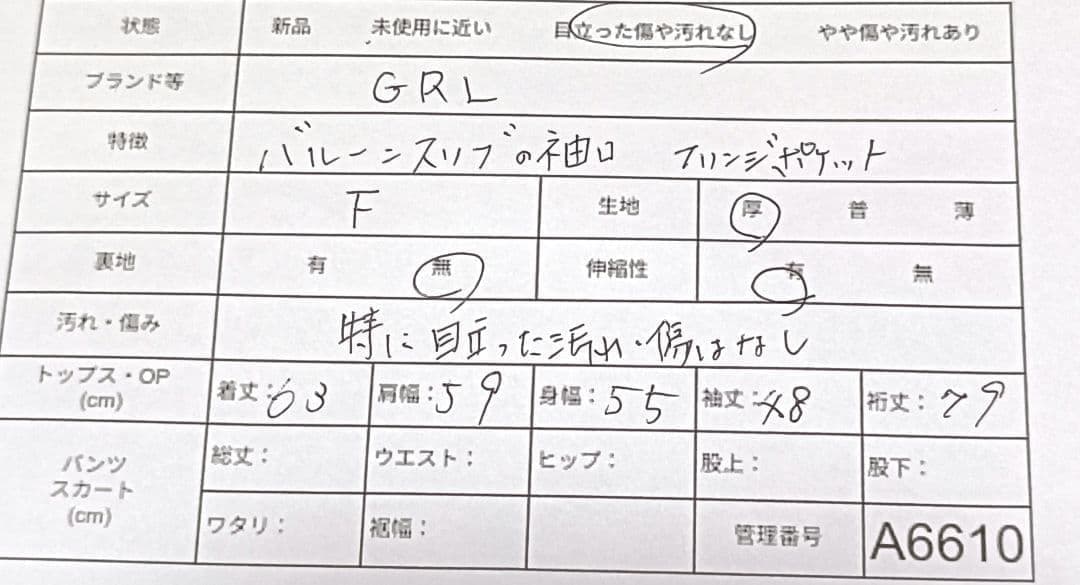 状態 新品 未使用に近い 目立った傷や汚れなし やや傷や汚れあり
ブランド等 GRL
特徴 バルーンスリブの袖口 フリンジポケット
サイズ F 生地 厚 普 薄
裏地 有 無 伸縮性 有 無
汚れ・傷み 特に目立った汚れ・傷はなし
トップス・OP (cm) 着丈:63 肩幅:59 身幅:55 袖丈:48 裄丈:79
パンツ スカート (cm) 総丈: ウエスト: ヒップ: 股上: 股下:
ワタリ: 裾幅: 管理番号 A6610